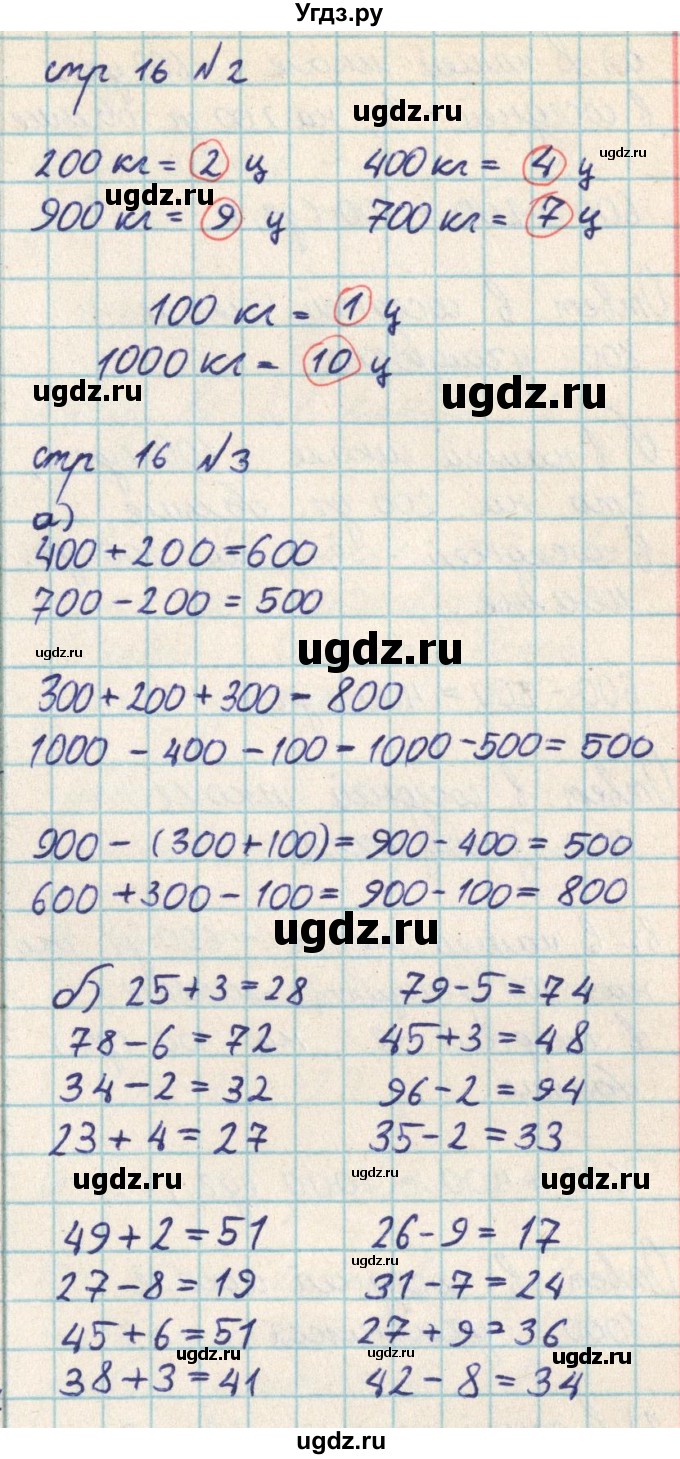 Угдз.ру
стр 16 №2
ugdz.ru
200 кг = 2 ц 400 кг = 4 ц ugdz.ru
ugdz.ru
900 кг = 9 ц 700 кг = 7 ц
100 кг = 1 ц
1000 кг - 10 ц
ugdz.ru ugdz.ru
стр 16 №3
а)
400 + 200 = 600
700 - 200 = 500
ugdz.ru ugdz.ru
300 + 200 + 300 - 800
1000 - 400 - 100 - 1000 - 500 = 500
900 - (300 + 100) = 900 - 400 = 500
600 + 300 - 100 = 900 - 100 = 800
ugdz.ru
б) 25 + 3 = 28 79 - 5 = 74
78 - 6 = 72 45 + 3 = 48
34 - 2 = 32 96 - 2 = 94
23 + 4 = 27 35 - 2 = 33
ugdz.ru ugdz.ru ugdz.ru
49 + 2 = 51 26 - 9 = 17
ugdz.ru
27 - 8 = 19 31 - 7 = 24
45 + 6 = 51 27 + 9 = 36
ugdz.ru ugdz.ru ugdz.ru
38 + 3 = 41 42 - 8 = 34
ugdz.ru